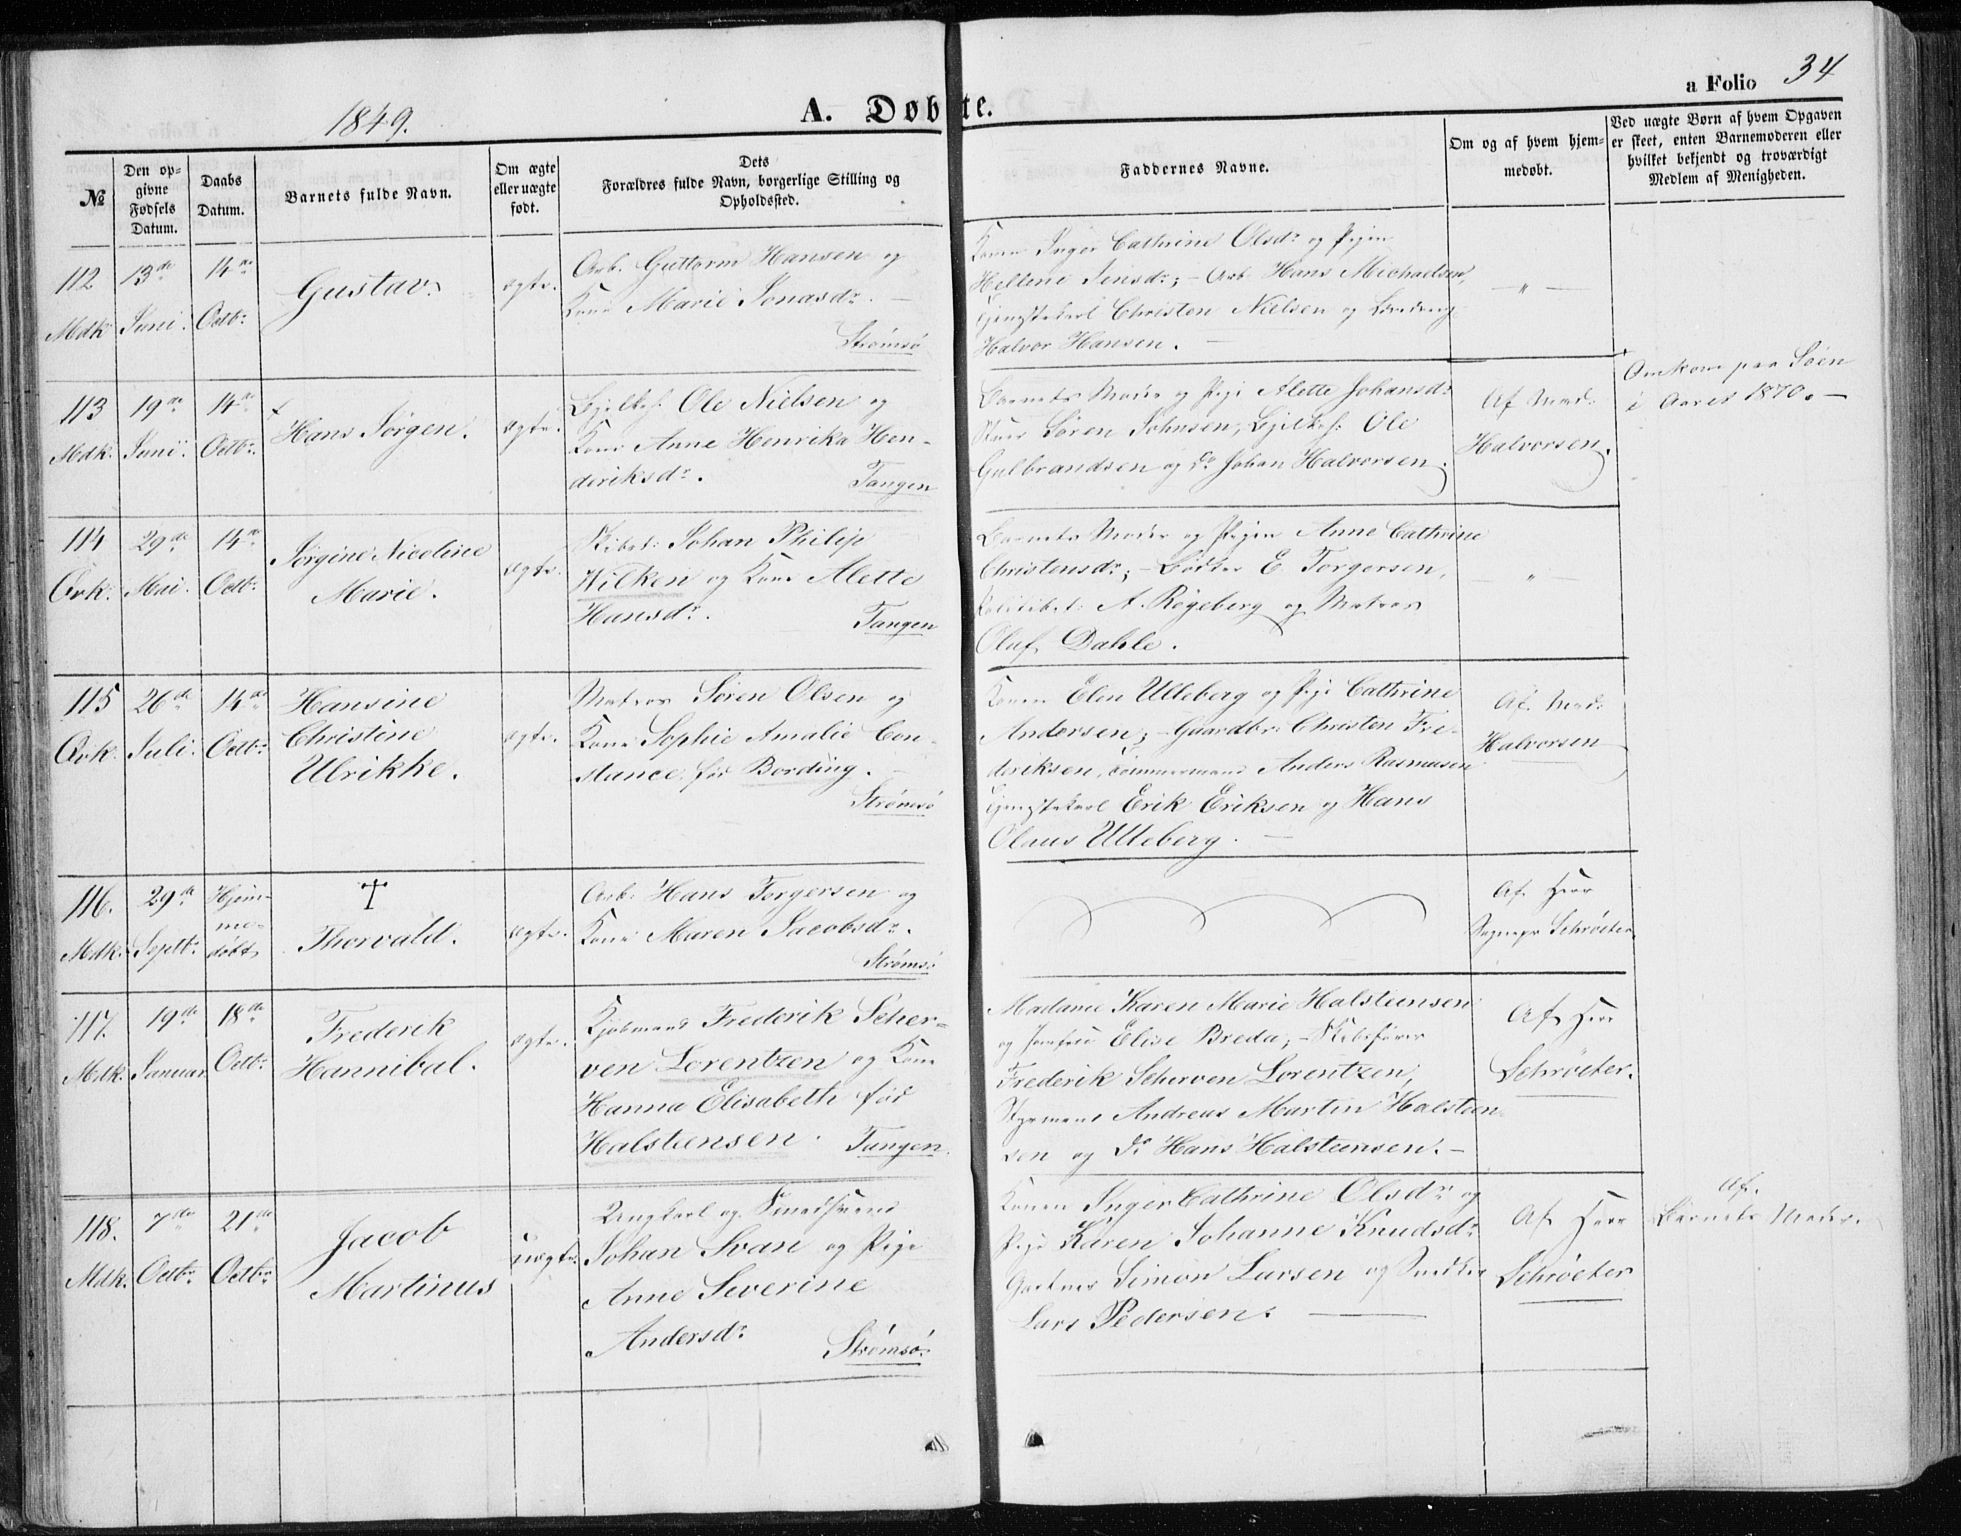 1849.
A. Døbte.
a Folio 34
№
Den op-
givne
Fødsels
Datum.
Daabs
Datum.
Barnets fulde Navn.
Om ægte
eller uægte
født.
Dets
Forældres fulde Navn, borgerlige Stilling og
Opholdssted.
Faddernes Navne.
Om og af hvem hjem-
medøbt.
Ved uægte Børn af hvem Opgaven
er skeet, enten Barnemoderen eller
hvilket bekjendt og troværdigt
Medlem af Menigheden.
112
Mdk:
13de
Juni.
14de
Octbr:
Gustav.
ægte.
Arb. Guttorm Hansen og
Kone Marie Jonasdr. —
Strømsø
Konen Inger Cathrine Olsdr. og Pigen
Hellene Jensdr; – Arb. Hans Michaelsen,
Tjenestekarl Christen Nielsen og
Halvor Hansen. —
— " —
113
Mdk.
19de
Juni.
14de
Octbr.
× Hans Jørgen.
ægte.
Ole Nielsen og
Kone Anne Henrika Hen-
deriksdr.
Tangen
Barnets Moder og Pige Alette Johansdr.
Søren Johnsen, Ole
Gulbrandsen og Do Johan Halvorsen.
Af Mad:
Halvorsen.
Omkom paa Søen
i Aaret 1870. —
114
Qvk:
29de
Mai.
14de
Octbr:
Jørgine Nicoline
Marie.
ægte.
Johan Philip
Wilken og Kone Alette
Hansdr.
Tangen
Barnets Moder og Pigen Anne Cathrine
Christensdr; – Bødker E. Torgersen,
A. Røgeberg og Matros
Oluf Dahle.
— " —
115
Qvk.
26de
Juli.
14de
Octbr:
Hansine
Christine
Ulrikke.
ægte.
Matros Søren Olsen og
Kone Sophie Amalie Con-
stance, før Bording. —
Strømsø
Konen Elen Ulleberg og Pige Cathrine
Andersen; – Gaardbr: Christen Fre-
deriksen, Tømmermand Anders Rasmusen
Tjenestekarl Erik Eriksen og Hans
Olaus Ulleberg. —
Af Mad:
Halvorsen
116.
Mdk.
29de
Septbr.
Hjem-
me-
døbt
†
Thorvald.
ægte.
Arb. Hans Torgersen og
Kone Maren Jacobsdr.
Strømsø
Af Herr
Sognepr Schrøeter.
117.
Mdk.
19de
Januar
18de
Octbr:
Frederik
Hannibal.
ægte.
Kjøbmand Frederik Scher-
ven Lorentzen og Kone
Hanna Elisabeth, født
Halsteensen.
Tangen.
Madame Karen Marie Halsteensen
og Jomfru Elise Breda; – Skibsfører
Frederik Scherven Lorentzen,
Styrmand Andreas Martin Halsteen-
sen og Do Hans Halsteensen. —
Af Herr
Schrøeter.
118.
Mdk.
7de
Octbr.
21de
Octbr.
Jacob
Martinus
uægte.
Ungkarl og Smedsvend
Johan Svan og Pige
Anne Severine
Andersdr.
Strømsø.
Konen Inger Cathrine Olsdr. og
Pige Karen Johanne Knudsdr.
Gartner Simon Larsen og Snedker
Lars Pedersen. —
Af Herr
Schrøeter
Af.
Barnets Moder.